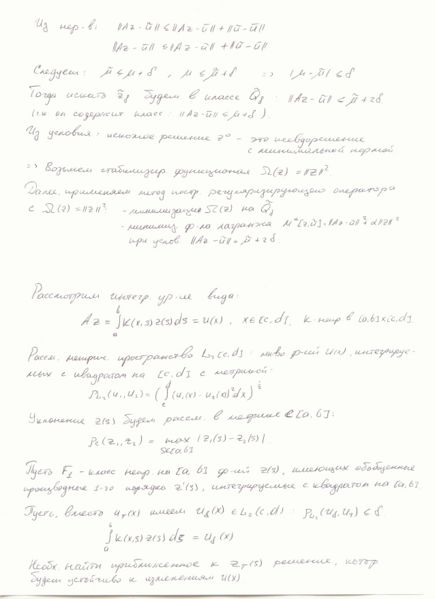 Из нер-в: ||Az-ũ|| ≤ ||Az-ū|| + ||ū-ũ||
||Az-ū|| ≤ ||Az-ũ|| + ||ũ-ū||
Следует: μ̃ ≤ μ+δ, μ ≤ μ̃+δ => |μ-μ̃| ≤ δ
Тогда искать z̃δ будем в классе Q̃δ: ||Az-ũ|| ≤ μ̃+2δ
(т.к он содержит класс: ||Az-ũ|| ≤ μ+δ).
Из условия: искомое решение z⁰ - это псевдорешение
с минимальной нормой
=> Возьмем стабилизир. функционал Ω(z) = ||z||².
Далее, применяем метод постр. регуляризирующего оператора
с Ω(z) = ||z||²: - минимизация Ω(z) на Q̃δ
- минимиз. ф-ла Лагранжа Mᵅ[z,ũ] = ||Az-ũ||² + α||z||²
при услов ||Az-ũ|| = μ̃+2δ
Рассмотрим интегр. ур-ие вида:
Az = ∫ₐᵇ K(x,s) z(s) ds = u(x), x∈[c,d], K-непр в [a,b]x[c,d].
Рассм. метрич. пространство L₂[c,d]: мн-во ф-ий u(x), интегрируе-
мых с квадратом на [c,d] с метрикой:
ρL₂(u₁,u₂) = (∫(u₁(x)-u₂(x))²dx)^½
Уклонение z(s) будем рассм. в метрике C[a,b]:
ρc(z₁,z₂) = max |z₁(s)-z₂(s)|
s∈[a,b]
Пусть F₁ - класс непр на [a,b] ф-ий z(s), имеющих обобщенные
производные 1-го порядка z'(s), интегрируемые с квадратом на [a,b].
Пусть, вместо uт(x) имеем uδ(x)∈L₂(c,d): ρL₂(uδ,uт) ≤ δ
∫ₐᵇ K(x,s) z(s) ds = uδ(x)
Необх. найти приближенное к zт(s) решение, котор
будет устойчиво к изменениям u(x)